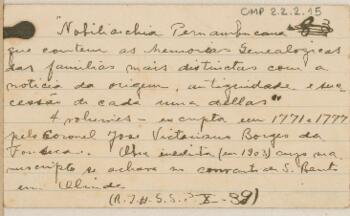 CMP 2.2.2.15
"Nobiliarchia Pernambucana
que contem as Memorias Genealogicas
das familias mais distinctas com a
noticia da origem, antiguidade e suc
cessão de cada uma dellas"
4 volumes - escripta em 1771 a 1777
pelo Coronel José Victorino Borges da
Fonseca. Obra inedita (em 1903) cujo ma
nuscripto se achava no convento de S. Bento
em Olinda
(R.I.H.S.S. X - 39)